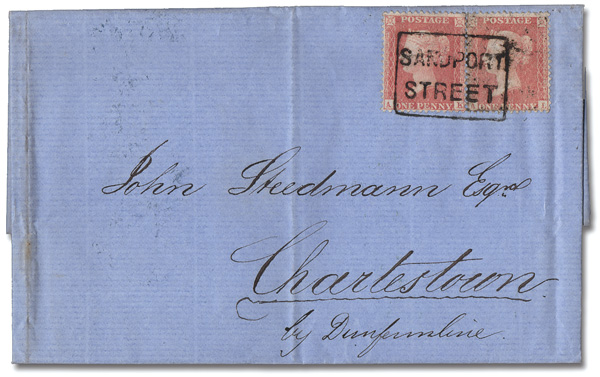 POSTAGE POSTAGE
SANDPORT
STREET
ONE PENNY ONE PENNY
John Steedmann Esqre
Charlestown
by Dunfermline